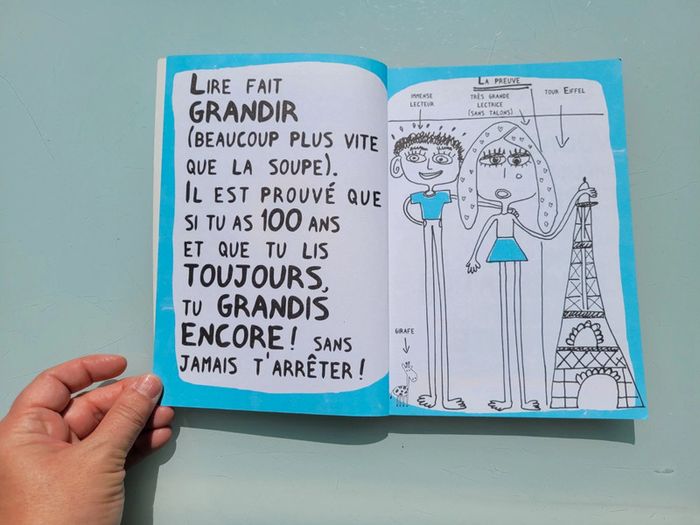 Lire fait
GRANDIR
(beaucoup plus vite
que la soupe).
Il est prouvé que
si tu as 100 ans
et que tu lis
TOUJOURS,
tu GRANDIS
ENCORE! sans
jamais t'arrêter!
La preuve
immense
lecteur
très grande
lectrice
(sans talons)
tour Eiffel
girafe